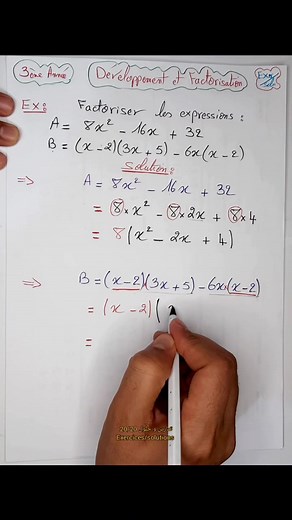 3ème Année
Développement et Factorisation
Ex:
Factoriser les expressions :
A = 8x² - 16x + 32
B = (x - 2)(3x + 5) - 6x(x - 2)
solution:
=> A = 8x² - 16x + 32
= 8 × x² - 8 × 2x + 8 × 4
= 8(x² - 2x + 4)
=> B = (x - 2)(3x + 5) - 6x(x - 2)
= (x - 2)(
=
Exercices/solutions